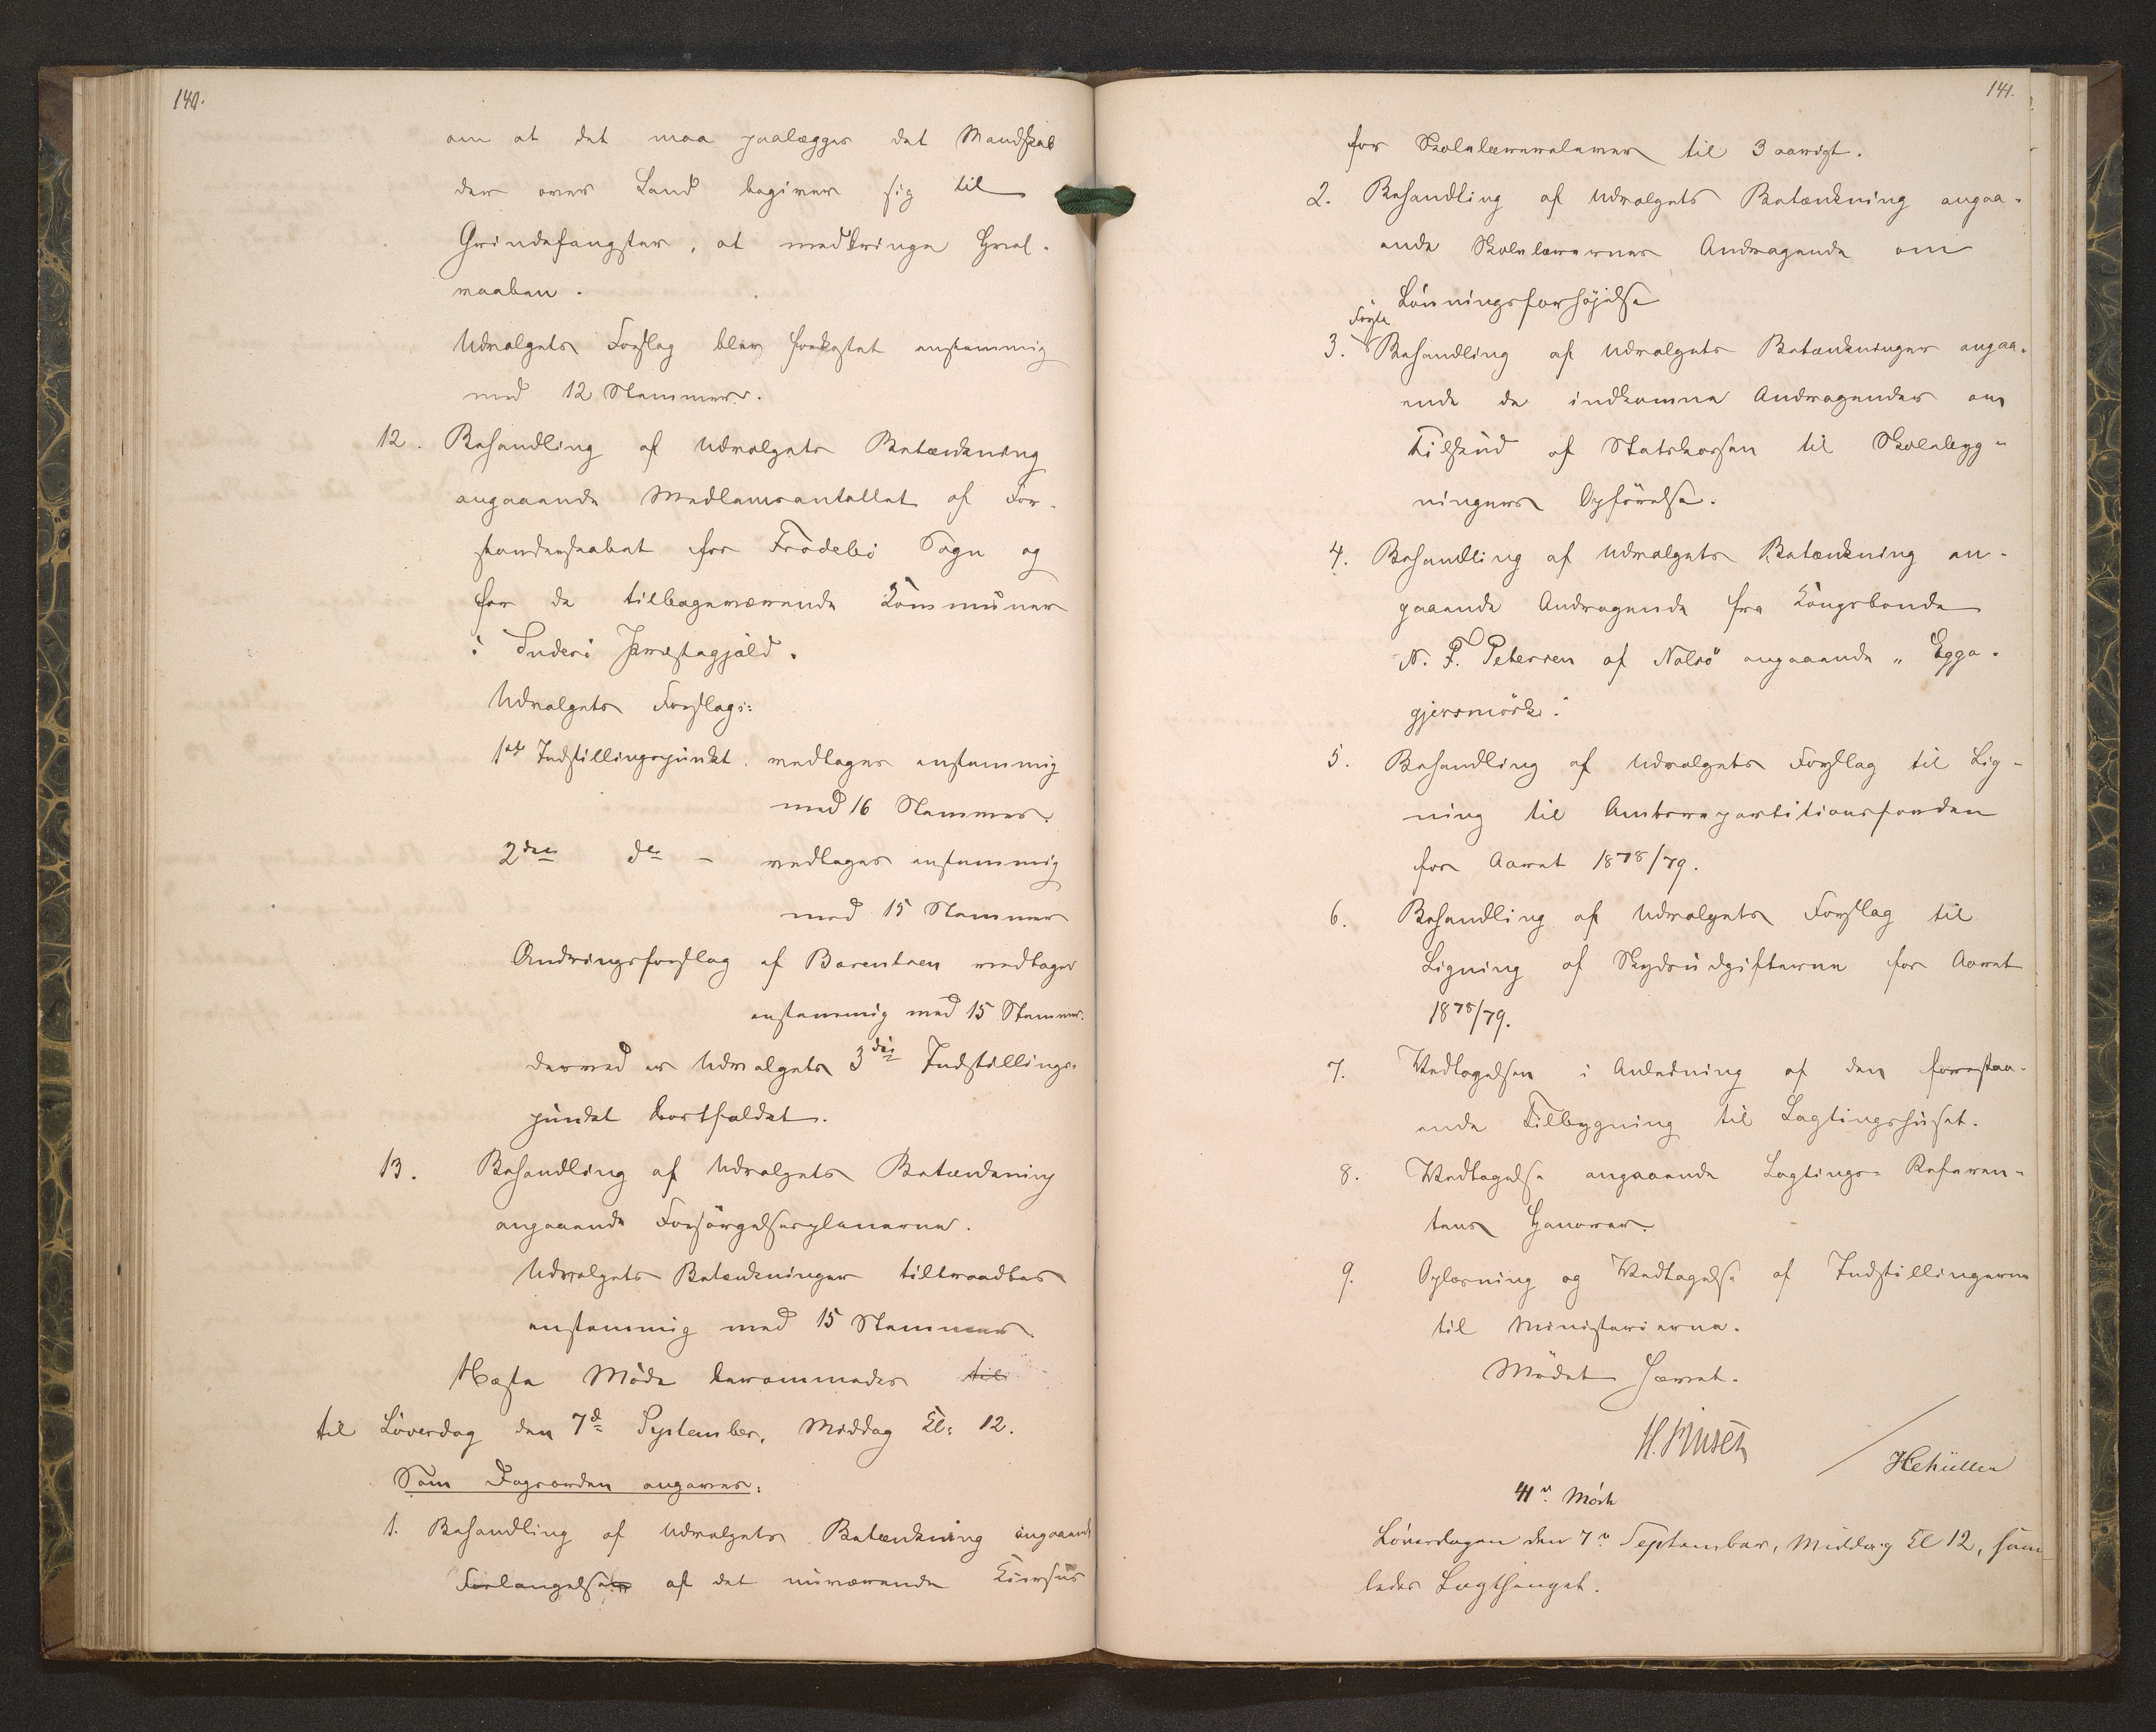 140.
om at det maa paalægges det Mandskab
der over Land begiver sig til
Grindefangster, at medbringe Hval-
vaaben.
Udvalgets Forslag blev forkastet enstemmig
med 12 Stemmer.
12. Behandling af Udvalgets Betænkning
angaaende Medlemsantallet af For-
standerskabet for Frodebö Sogn og
for de tilbageværende Kommuner
i Suderö Præstegjæld.
Udvalgets Forslag:
1ste Indstillingspunkt vedtages enstemmig
med 16 Stemmer.
2den do – vedtages enstemmig
med 15 Stemmer
Ændringsforslag af Barentsen vedtages
enstemmig med 15 Stemmer.
derved er Udvalgets 3die Indstillings-
punkt bortfaldet.
13. Behandling af Udvalgets Betænkning
angaaende Forsörgelsesplanerne.
Udvalgets Betænkninger tiltraadtes
enstemmig med 15 Stemmer.
Næste Möde berammedes til
til Löverdag den 7d September, Middag Kl: 12.
Som Dagsorden angaves:
1. Behandling af Udvalgets Betænkning angaaende
Forlængelse af det nuværende Kursus
141.
for Skolelærerelever til 3 aarigt.
2. Behandling af Udvalgets Betænkning angaa-
ende Skolelærernes Andragende om
Lönningsforhöjelse
3. Behandling af Udvalgets Betænkninger angaa-
ende de indkomne Andragender om
Tilskud af Statskassen til Skolebyg-
ningers Opförelse.
4. Behandling af Udvalgets Betænkning an-
gaaende Andragende fra Kongsbonde
N. F. Petersen af Nolsö angaaende „Egga-
gjersmörk“.
5. Behandling af Udvalgets Forslag til Lig-
ning til Amtsrepartitionsfonden
for Aaret 1878/79.
6. Behandling af Udvalgets Forslag til
Ligning af Skydsudgifterne for Aaret
1878/79.
7. Vedtagelsen i Anledning af den forestaa-
ende Tilbygning til Lagtingshuset.
8. Vedtagelse angaaende Lagtings-Referen-
tens Honorar.
9. Oplæsning og Vedtagelse af Indstillingerne
til Ministerierne.
Mödet hævet.
Löverdagen den 7de September, Middag Kl 12, sam-
ledes Lagthinget.